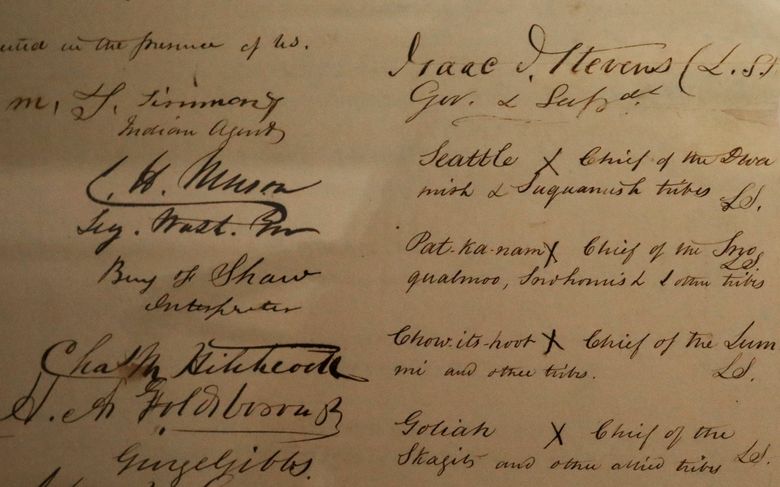 uted in the presence of us.
M. T. Simmons
Indian Agent
C. H. Mason
Secy. Wash. Ter
Benj F Shaw
Interpreter
Chas M Hitchcock
H. A Goldsborough
George Gibbs.
Isaac I. Stevens (L.S.)
Gov. & Supdt
Seattle X Chief of the Dwa
mish & Suquamish tribes L.S.
Pat-ka-nam X Chief of the Sno
qualmoo, Snohomish & other tribes L.S.
Chow-its-hoot X Chief of the Lum
mi and other tribes. L.S.
Goliah X Chief of the
Skagits and other allied tribes L.S.